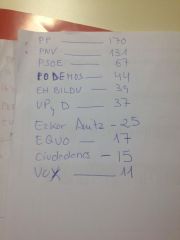 PP — 170
PNV — 131
PSOE — 67
PODEMOS — 44
EH BILDU — 39
UPyD — 37
Ezker Anitz - 25
EQUO — 17
Ciudadanos - 15
VOX — 11